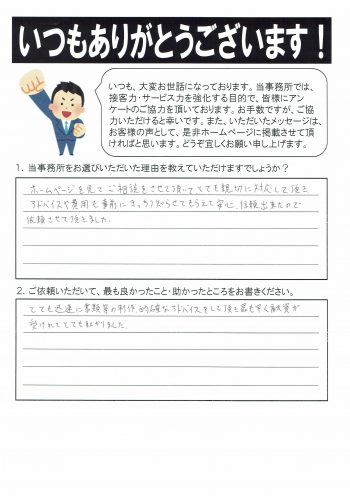 いつもありがとうございます！
いつも、大変お世話になっております。当事務所では、
接客力・サービス力を強化する目的で、皆様にアン
ケートのご協力を頂いております。お手数ですが、ご協
力いただけると幸いです。また、いただいたメッセージは、
お客様の声として、是非ホームページに掲載させて頂
ければと思います。どうぞ宜しくお願い申し上げます。
1. 当事務所をお選びいただいた理由を教えていただけますでしょうか？
ホームページを見てご相談をさせて頂いてとても親切に対応して頂き
アドバイスや費用も事前にきっちり知らせてもらえて安心、信頼出来たので
依頼させて頂きました。
2. ご依頼いただいて、最も良かったこと・助かったところをお書きください。
とても迅速に書類等の制作、的確なアドバイスをして頂き最も早く融資が
受けれてとても助かりました。